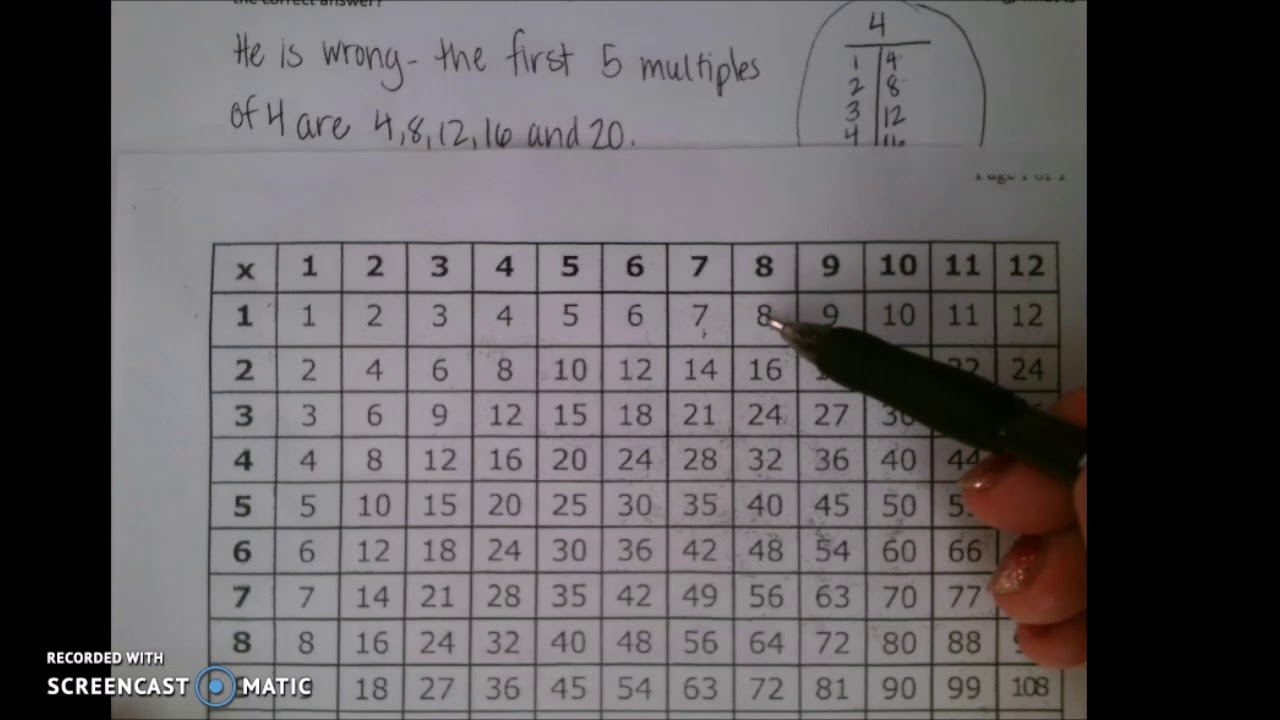 the correct answer?
He is wrong- the first 5 multiples
of 4 are 4,8,12,16 and 20.
4
1 4
2 8
3 12
4 16
Page 1 of 1
x 1 2 3 4 5 6 7 8 9 10 11 12
1 1 2 3 4 5 6 7 8 9 10 11 12
2 2 4 6 8 10 12 14 16 22 24
3 3 6 9 12 15 18 21 24 27 30
4 4 8 12 16 20 24 28 32 36 40 44
5 5 10 15 20 25 30 35 40 45 50
6 6 12 18 24 30 36 42 48 54 60 66
7 7 14 21 28 35 42 49 56 63 70 77
8 8 16 24 32 40 48 56 64 72 80 88
18 27 36 45 54 63 72 81 90 99 108
RECORDED WITH
SCREENCAST MATIC